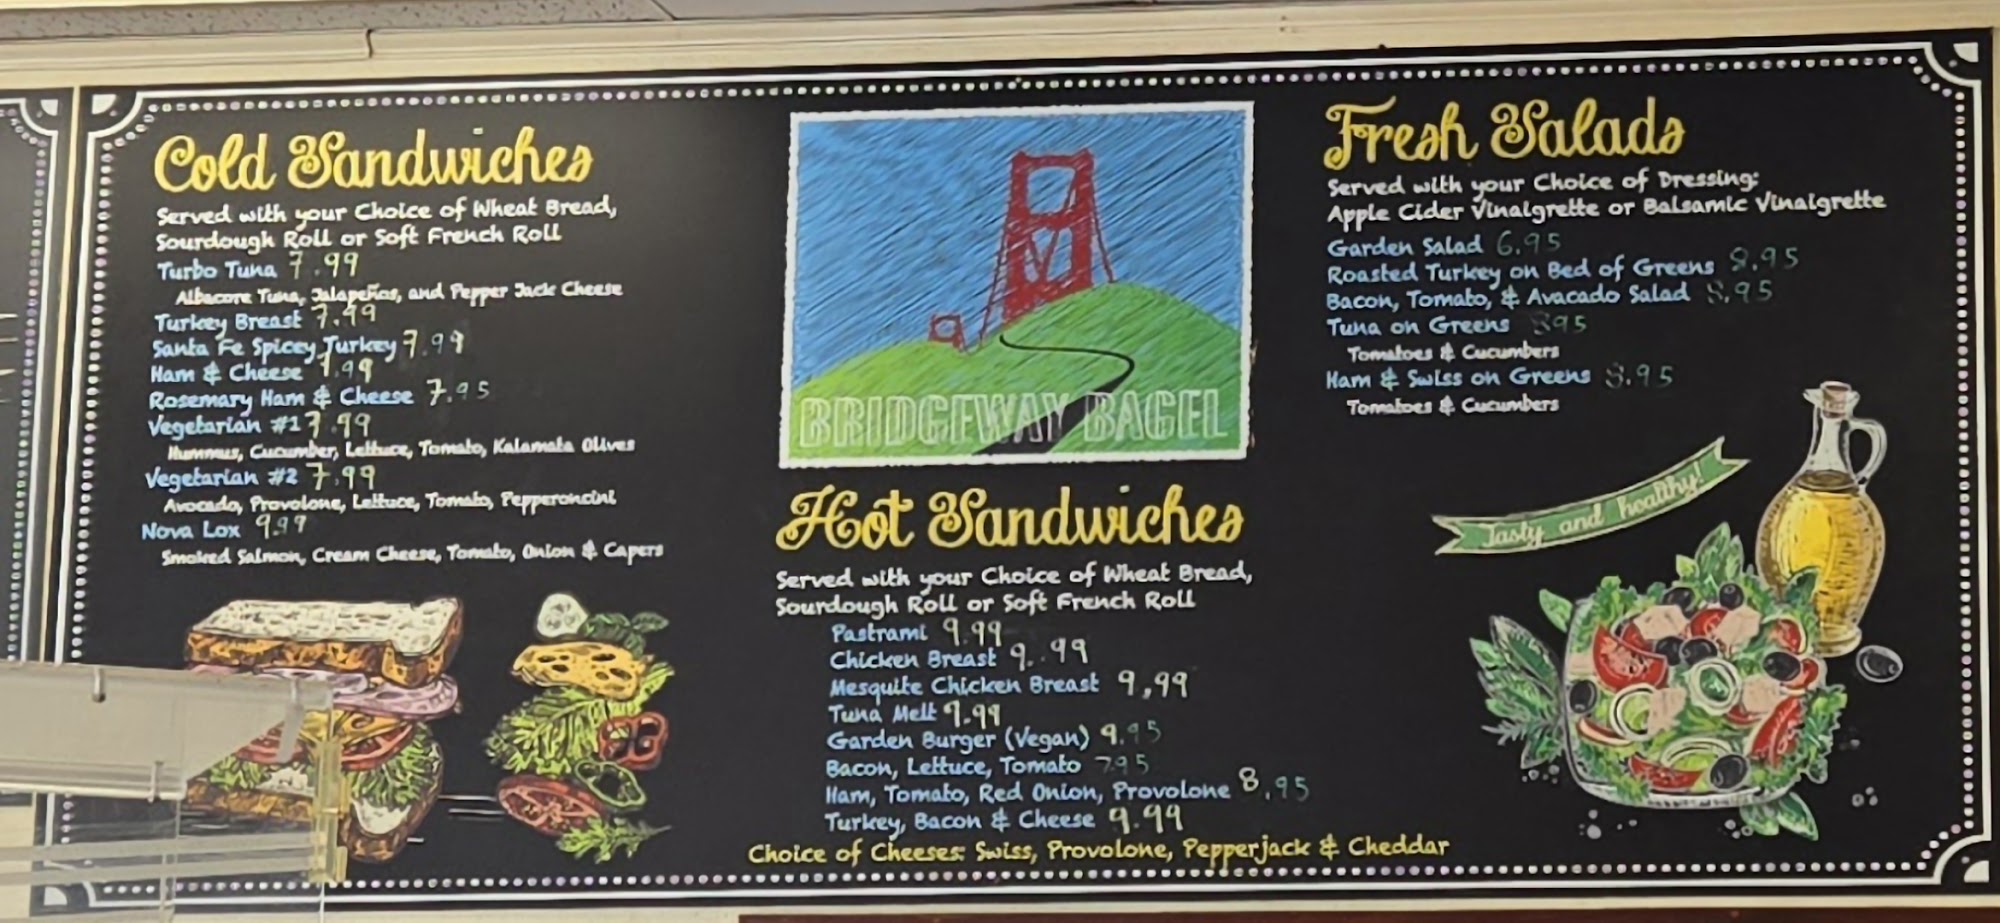 Cold Sandwiches
Served with your Choice of Wheat Bread,
Sourdough Roll or Soft French Roll
Turbo Tuna 7.99
Albacore Tuna, Jalapeños, and Pepper Jack Cheese
Turkey Breast 7.99
Santa Fe Spicey Turkey 7.99
Ham & Cheese 7.99
Rosemary Ham & Cheese 7.95
Vegetarian #1 7.99
Hummus, Cucumber, Lettuce, Tomato, Kalamata Olives
Vegetarian #2 7.99
Avocado, Provolone, Lettuce, Tomato, Pepperoncini
Nova Lox 9.99
Smoked Salmon, Cream Cheese, Tomato, Onion & Capers
BRIDGEWAY BAGEL
Hot Sandwiches
Served with your Choice of Wheat Bread,
Sourdough Roll or Soft French Roll
Pastrami 9.99
Chicken Breast 9.99
Mesquite Chicken Breast 9,99
Tuna Melt 9.99
Garden Burger (Vegan) 9.95
Bacon, Lettuce, Tomato 7.95
Ham, Tomato, Red Onion, Provolone 8.95
Turkey, Bacon & Cheese 9.99
Choice of Cheeses: Swiss, Provolone, Pepperjack & Cheddar
Fresh Salads
Served with your Choice of Dressing:
Apple Cider Vinaigrette or Balsamic Vinaigrette
Garden Salad 6.95
Roasted Turkey on Bed of Greens 8.95
Bacon, Tomato, & Avacado Salad 8.95
Tuna on Greens 8.95
Tomatoes & Cucumbers
Ham & Swiss on Greens 8.95
Tomatoes & Cucumbers
Tasty and healthy!